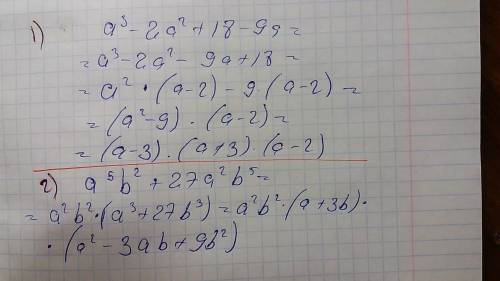 1) a³ - 2a² + 18 - 9a =
= a³ - 2a² - 9a + 18 =
= a² · (a-2) - 9 · (a-2) =
= (a²-9) · (a-2) =
= (a-3) · (a+3) · (a-2)
2) a⁵b² + 27a²b⁵ =
= a²b² · (a³ + 27b³) = a²b² · (a + 3b) ·
· (a² - 3ab + 9b²)